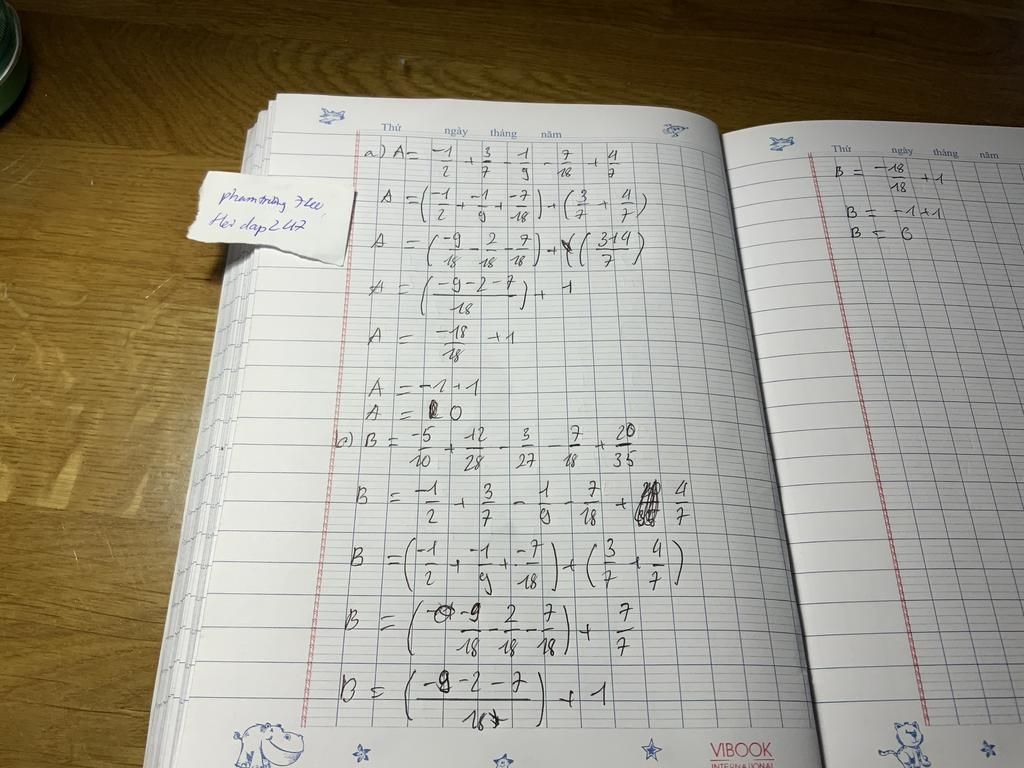 Thứ ngày tháng năm
a) A = -1/2 + 3/7 - 1/9 - 7/18 + 4/7
A = (-1/2 + -1/9 + -7/18) + (3/7 + 4/7)
A = (-9/18 - 2/18 - 7/18) + ((3+4/7)
A = (-9-2-7/18) + 1
A = -18/18 + 1
A = -1+1
A = 0
B = -5/10 + 12/28 - 3/27 - 7/18 + 20/35
B = -1/2 + 3/7 - 1/9 - 7/18 + 4/7
B = (-1/2 + -1/9 + -7/18) + (3/7 + 4/7)
B = (-9/18 - 2/18 - 7/18) + 7/7
B = (-9-2-7/18) + 1
VIBOOK
INTERNATIONAL
Thứ ngày tháng năm
B = -18/18 + 1
B = -1+1
B = 0